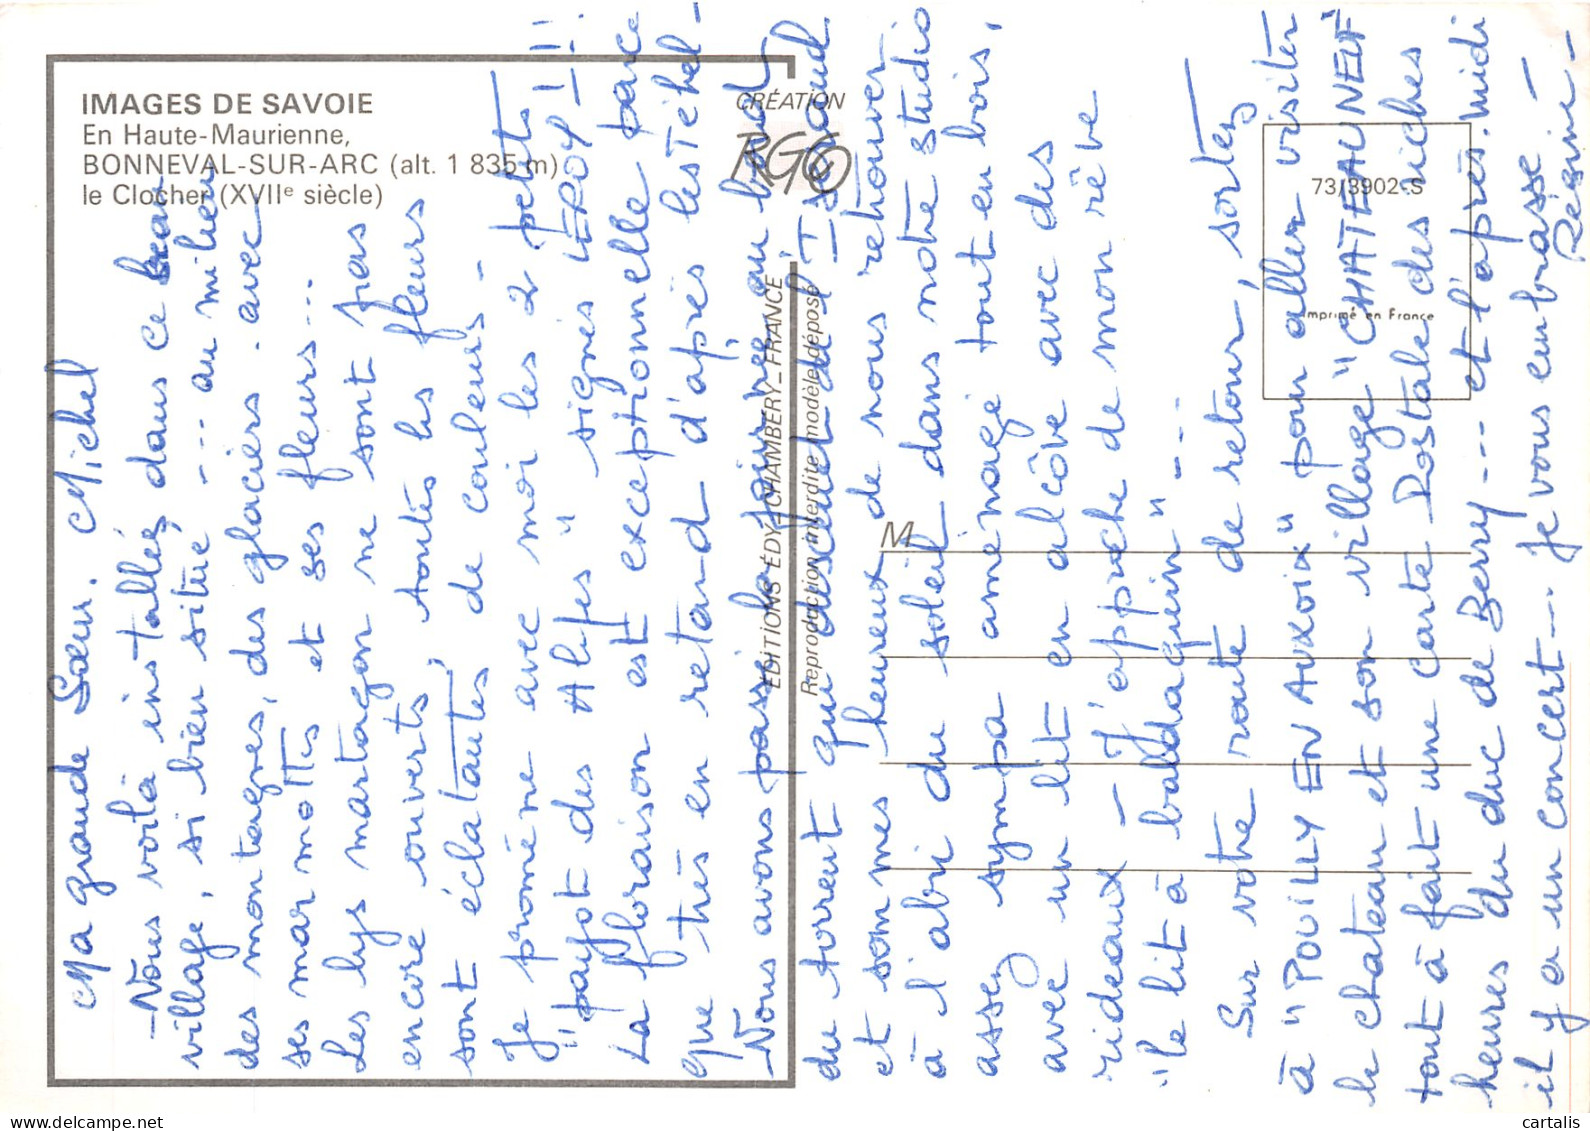 IMAGES DE SAVOIE
En Haute-Maurienne,
BONNEVAL-SUR-ARC (alt. 1 835 m)
le Clocher (XVIIe siècle)
CRÉATION
RGO
ÉDITIONS ÉDY_CHAMBÉRY_FRANCE
Reproduction interdite modèle déposé
73/3902-S
Imprimé en France
M
Ma grande Sœur. Michel
- Nous voilà installés, dans ce beau
village, si bien situé --- au milieu
des montagnes, des glaciers. avec
ses marmottes et ses fleurs...
Les lys martagon ne sont pas
encore ouverts, toutes les fleurs
sont éclatantes, de couleurs -
Je promène avec moi les 2 petits
"payot des Alpes" signés LEROY !!!!
La floraison est exceptionnelle parce
que très en retard d'après les Téhel -
Nous avons passé la journée au bord
du torrent qui descend de l'Iseran
et sommes heureux de nous retrouver
à l'abri du soleil dans notre studio
assez sympa aménagé tout en bois,
avec un lit en alcôve avec des
rideaux - J'approche de mon rêve
"le lit à baldaquin" ---
Sur votre route de retour, sortez
à "POUILLY EN AUXOIX" pour aller visiter
le chateau et son village "CHATEAUNEUF"
tout à fait une carte Postale des riches
heures du duc de Berry --- et l'après-midi
il y a un concert... Je vous embrasse -
Régine -
© cartalis